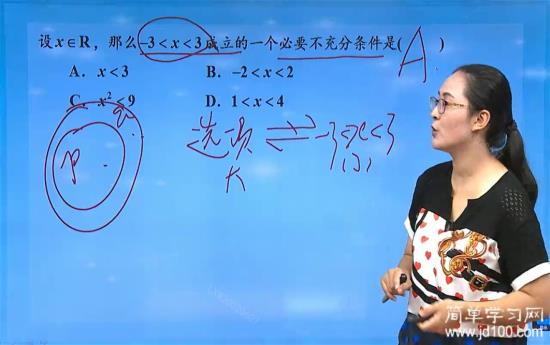 设x∈R，那么-3<x<3成立的一个必要不充分条件是( A )
A. x<3 B. -2<x<2
C. x²<9 D. 1<x<4
选项 ⇌ -3<x<3
P
简单学习网
www.jd100.com